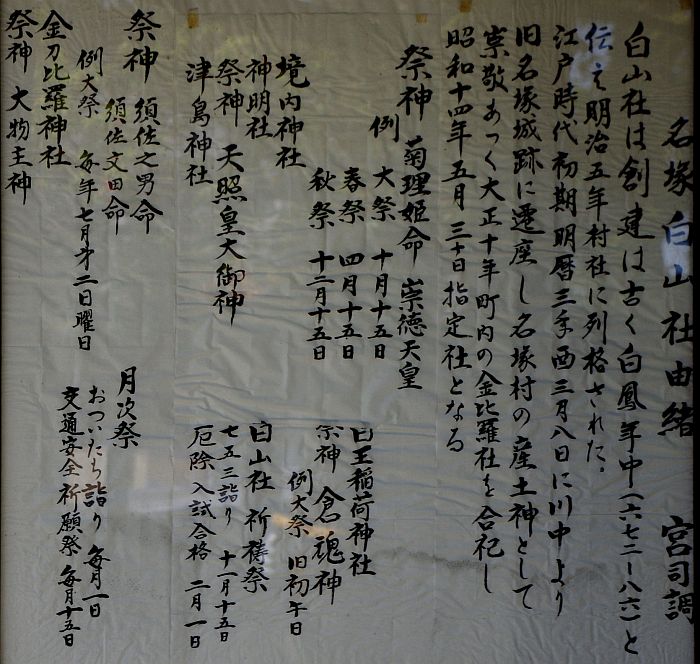 名塚白山社由緒 宮司調
白山社は創建は古く白鳳年中(六七二ー八六)と
伝え明治五年村社に列格された。
江戸時代初期明暦三年酉三月八日に川中より
旧名塚城跡に遷座し名塚村の産土神として
崇敬あつく大正十年町内の金比羅社を合祀し
昭和十四年五月三十日指定社となる
祭神 菊理姫命 崇徳天皇
例 大祭 十月十五日
春祭 四月十五日
秋祭 十二月十五日
境内神社
神明社
祭神 天照皇大御神
津島神社
祭神 須佐之男命
須佐文田命
例大祭 毎年七月才二日曜日
金刀比羅神社
祭神 大物主神
白王稲荷神社
祭神 倉魂神
例大祭 旧初午日
白山社 祈祷祭
七五三詣り 十一月十五日
厄除入試合格 二月一日
月次祭
おついたち詣り 毎月一日
交通安全祈願祭 毎月十五日